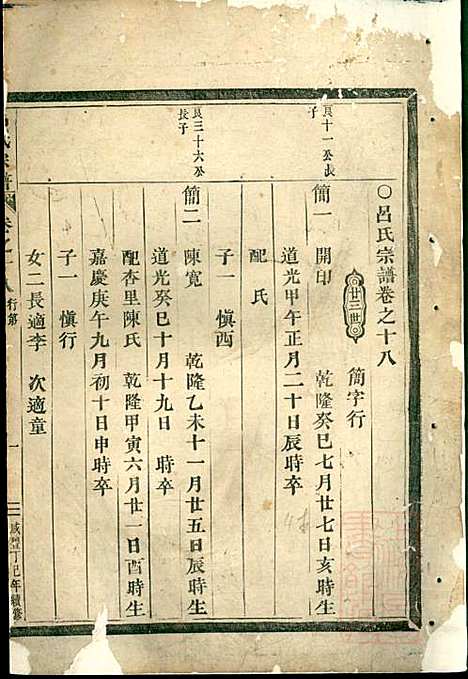 ○呂氏宗譜卷之十八
廿三世
簡字行
良十一公長子
簡一 開印 乾隆癸巳七月廿七日亥時生
道光甲午正月二十日辰時卒
配 氏
子一 愼西
良三十六公長子
簡二 陳寬 乾隆乙未十一月廿五日辰時生
道光癸巳十月十九日 時卒
配杏里陳氏 乾隆甲寅六月廿一日酉時生
嘉慶庚午九月初十日申時卒
子一 愼行
女二長適李 次適童
氏宗譜 卷之十八 行第 一 咸豐丁巳年續修